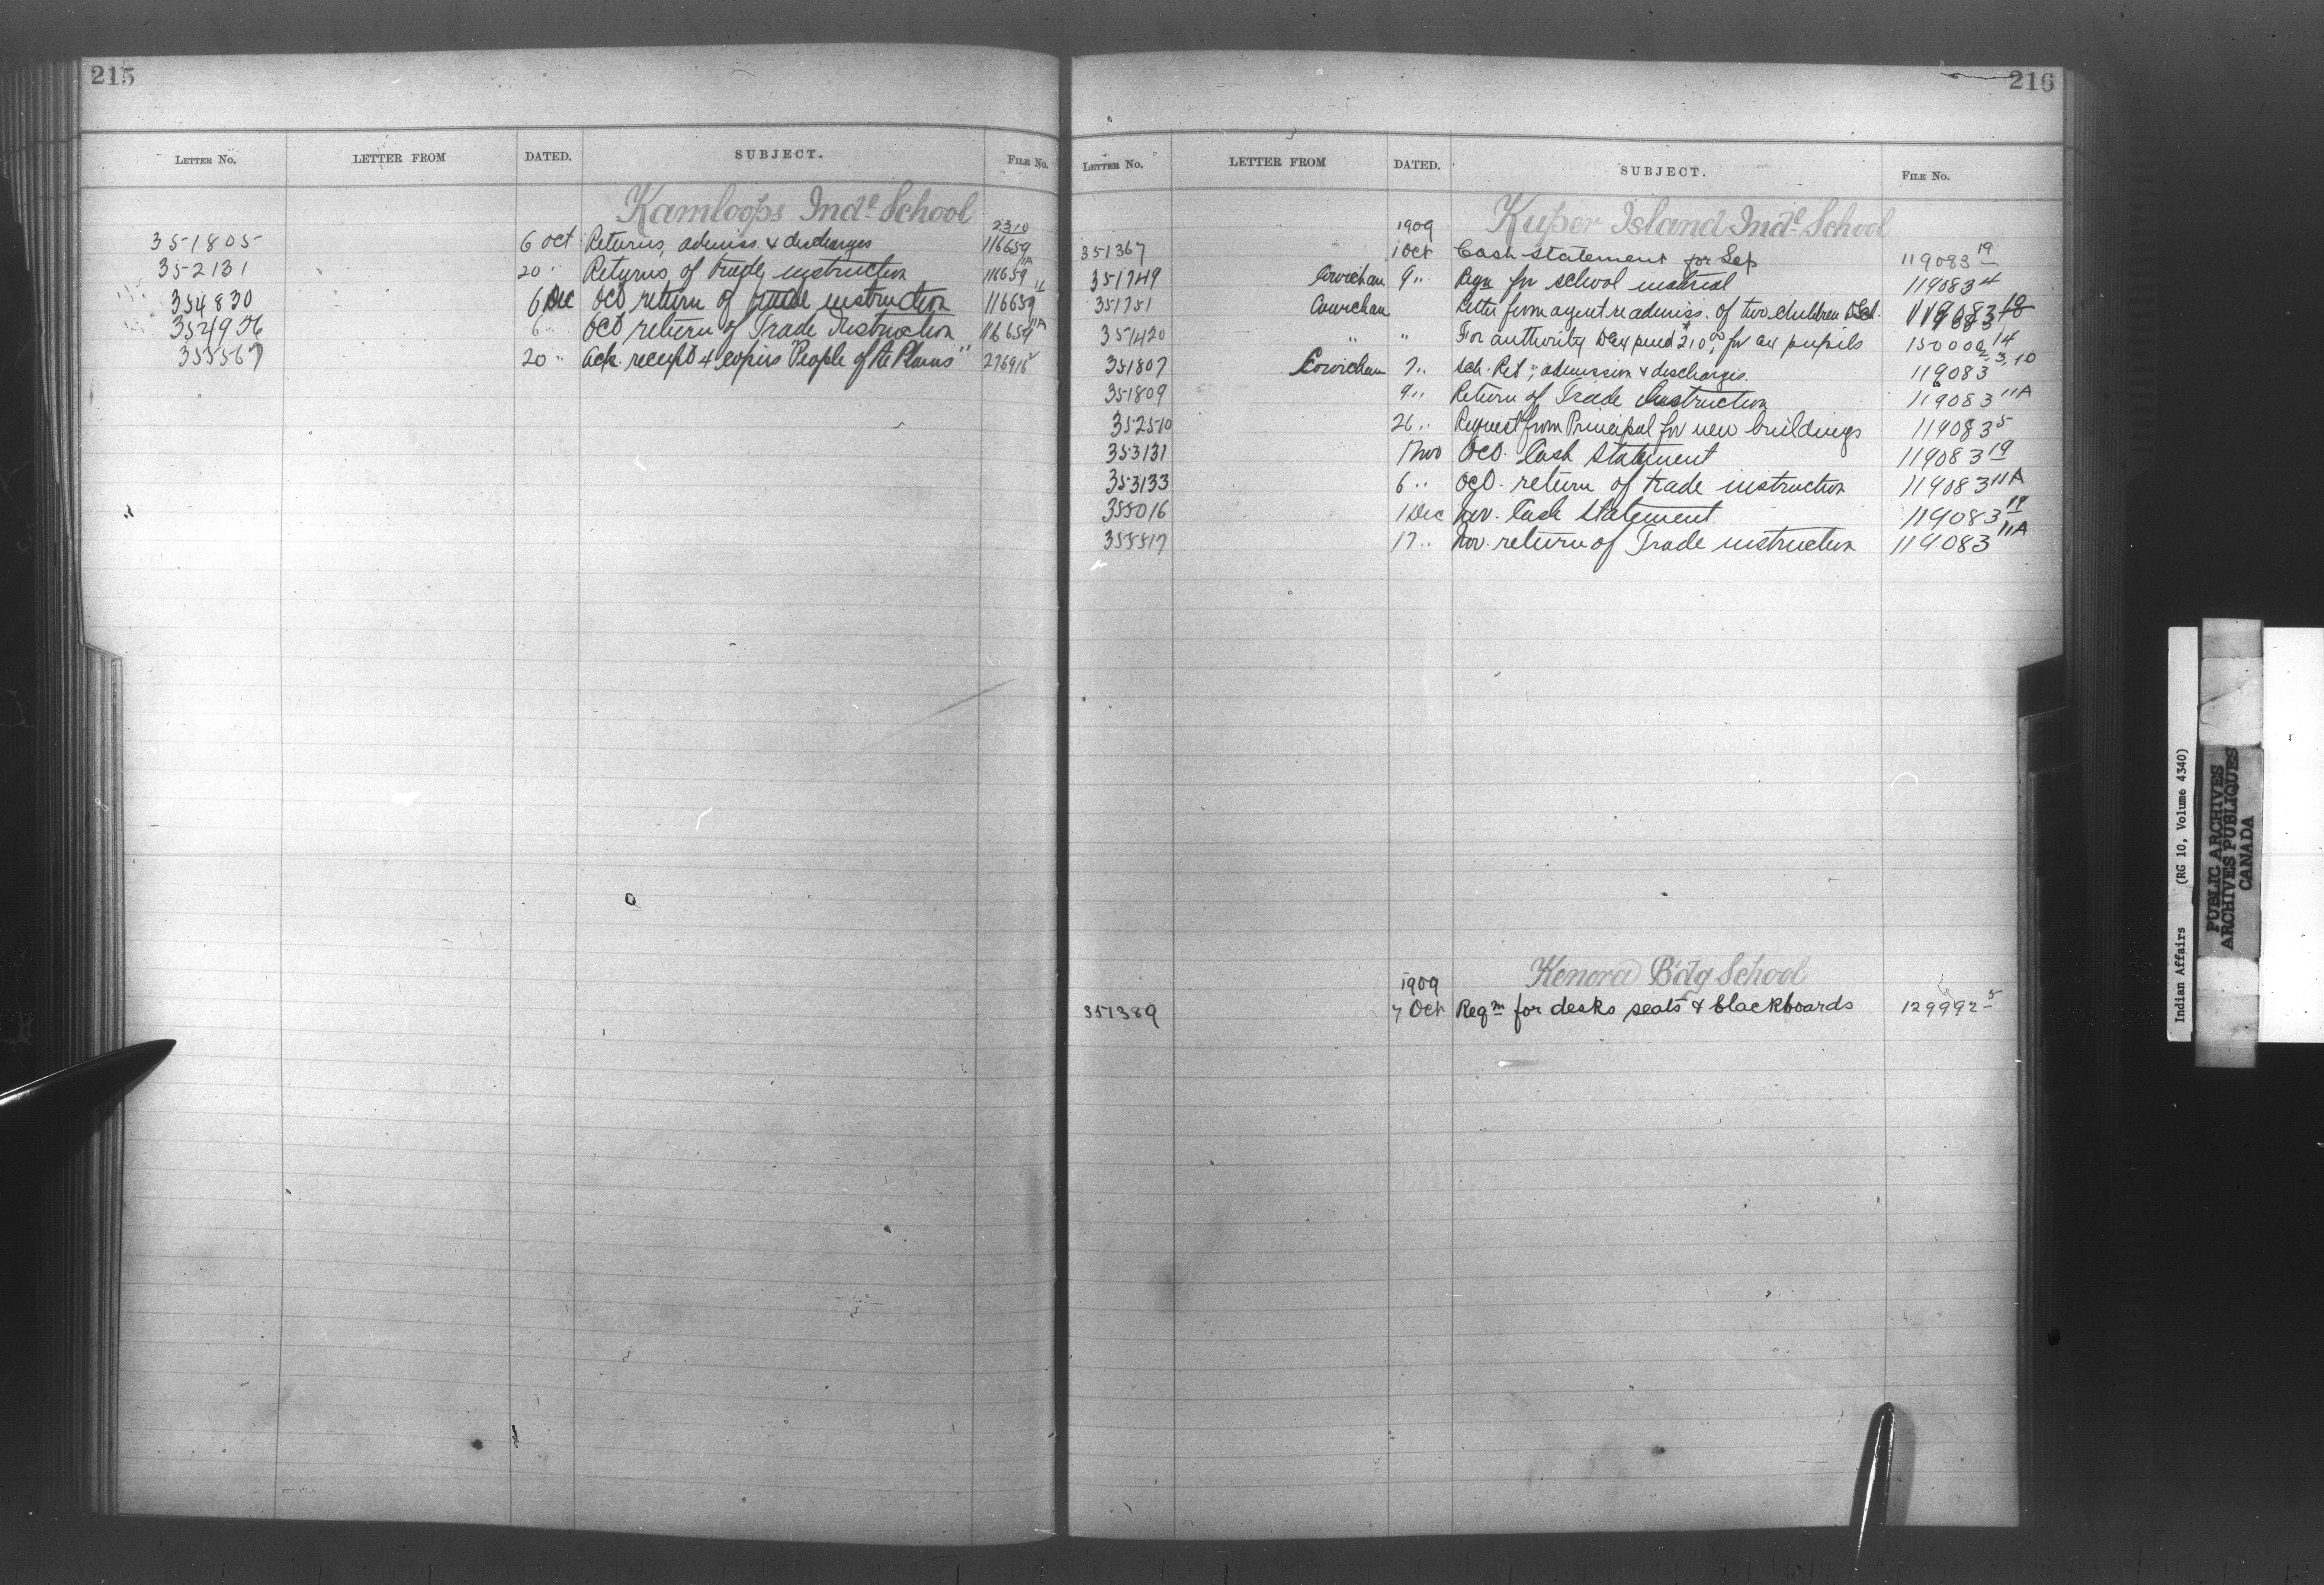 215
LETTER No. LETTER FROM DATED. SUBJECT. FILE No.
Kamloops Indl School
351805 6 Oct Returns, admiss. & discharges 116659 2 3 10
352131 20 " Returns, of trade instruction 116659 11A
354830 6 Dec Oct return of trade instruction 116659 11
354956 6 Oct return of Trade Instruction 116659 11A
355567 20 " Ack. receipt 4 copies "People of the Plains"
216
LETTER No. LETTER FROM DATED. SUBJECT. FILE No.
1909 Kuper Island Indl School
351367 1 Oct Cash statement for Sep 119083 19
351749 Cowichan 9 " Reqn for school material 119083 4
351751 Cowichan Letter from agent re admiss. of two children 119083 10
351420 " " For authority to expend $210.00 for ex pupils 150000 14
351807 Cowichan 7 " Sch. Ret; admission & discharges. 119083 2, 3, 10
351809 9 " Return of Trade Instruction 119083 11A
352510 26 " Request from Principal for new buildings 119083 5
353131 1 Nov Oct. Cash Statement 119083 19
353133 6 " Oct. return of trade instruction 119083 11A
355016 1 Dec Nov. Cash Statement 119083 19
355517 17 " Nov. return of Trade instruction 119083 11A
1909 Kenora Bdg School
351389 7 Oct Reqn for desks seats & blackboards 129992-5
Indian Affairs (RG 10, Volume 4340)
PUBLIC ARCHIVES
ARCHIVES PUBLIQUES
CANADA